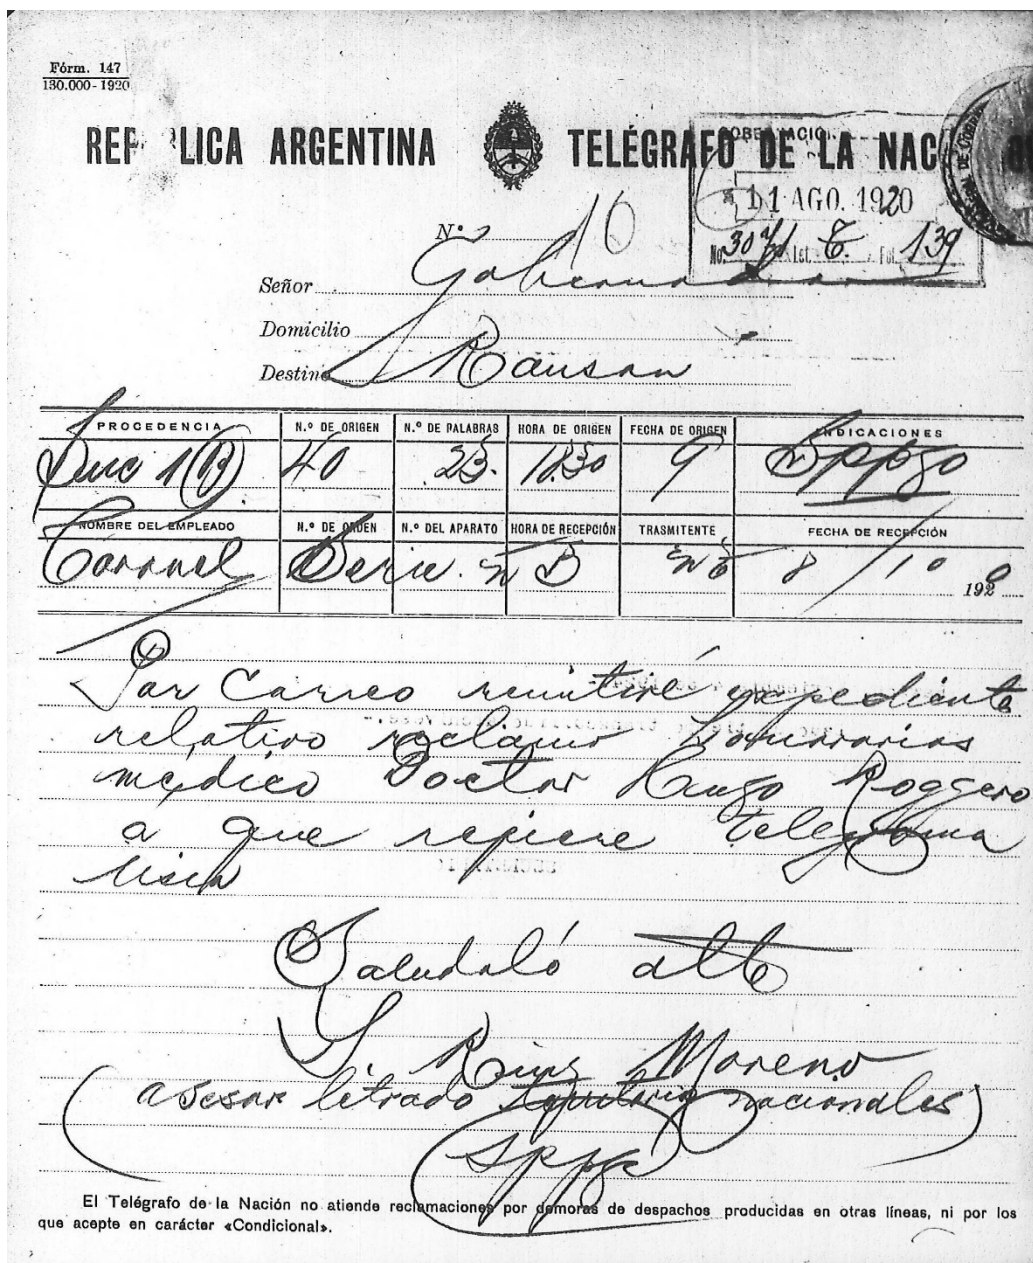 Fórm. 147
130.000-1920
REP BLICA ARGENTINA TELÉGRAFO DE LA NAC
GOBERNACION
11 AGO. 1920
No. Let. Fol. 139
N.º 10
Señor Gobernador
Domicilio
Destino Rauson
PROCEDENCIA N.º DE ORIGEN N.º DE PALABRAS HORA DE ORIGEN FECHA DE ORIGEN INDICACIONES
40 23. 18.30 9
NOMBRE DEL EMPLEADO N.º DE ORDEN N.º DEL APARATO HORA DE RECEPCIÓN TRASMITENTE FECHA DE RECEPCIÓN
Coronel Serie 8/10 1920
Por Correo remitiré expediente
relativo reclamo honorarios
médico Doctor Hugo Roggero
a que refiere telegrama
Saludaló atte
Ruiz Moreno
(asesor letrado nacionales)
El Telégrafo de la Nación no atiende reclamaciones por demoras de despachos producidas en otras líneas, ni por los
que acepte en carácter «Condicional».